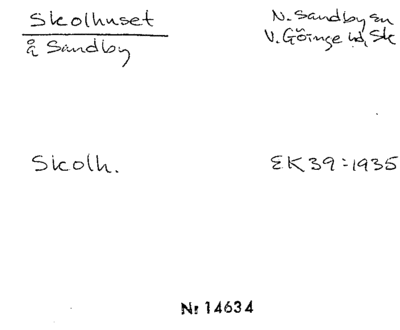 Skolhuset
å Sandby
N. Sandby sn
V. Göinge hd, Sk
Skolh.
EK 39:1935
Nr 14634